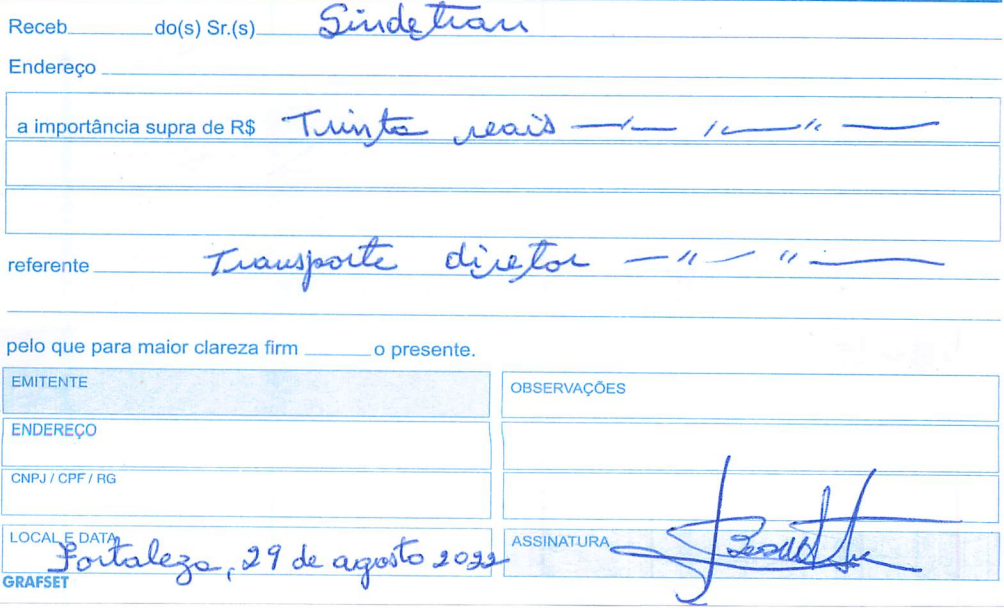 Receb______do(s) Sr.(s) Sindetran
Endereço
a importância supra de R$ Trinta reais
referente Transporte diretor
pelo que para maior clareza firm ______ o presente.
EMITENTE
OBSERVAÇÕES
ENDEREÇO
CNPJ / CPF / RG
LOCAL E DATA
Fortaleza, 29 de agosto 2022
ASSINATURA
GRAFSET